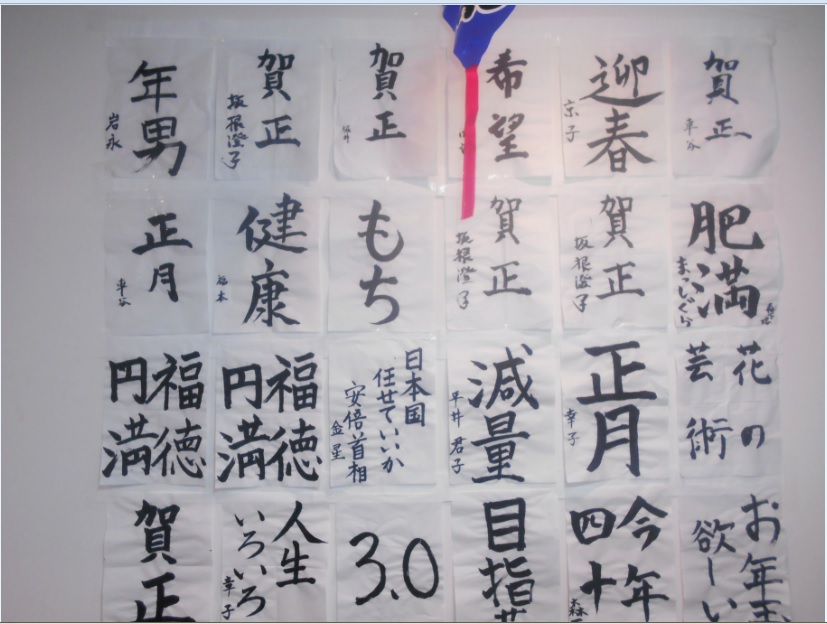 年男
岩永
賀正
坂根澄子
賀正
希望
迎春
京子
賀正
平谷
正月
平谷
健康
福本
もち
賀正
坂根澄子
賀正
坂根澄子
肥満
まっしぐら
福徳
円満
福徳
円満
日本国
任せていいか
安倍首相
金星
減量
平井君子
正月
幸子
花の
芸術
賀正
人生
いろいろ
幸子
3.0
目指
今年
四十
森
お年玉
欲しい